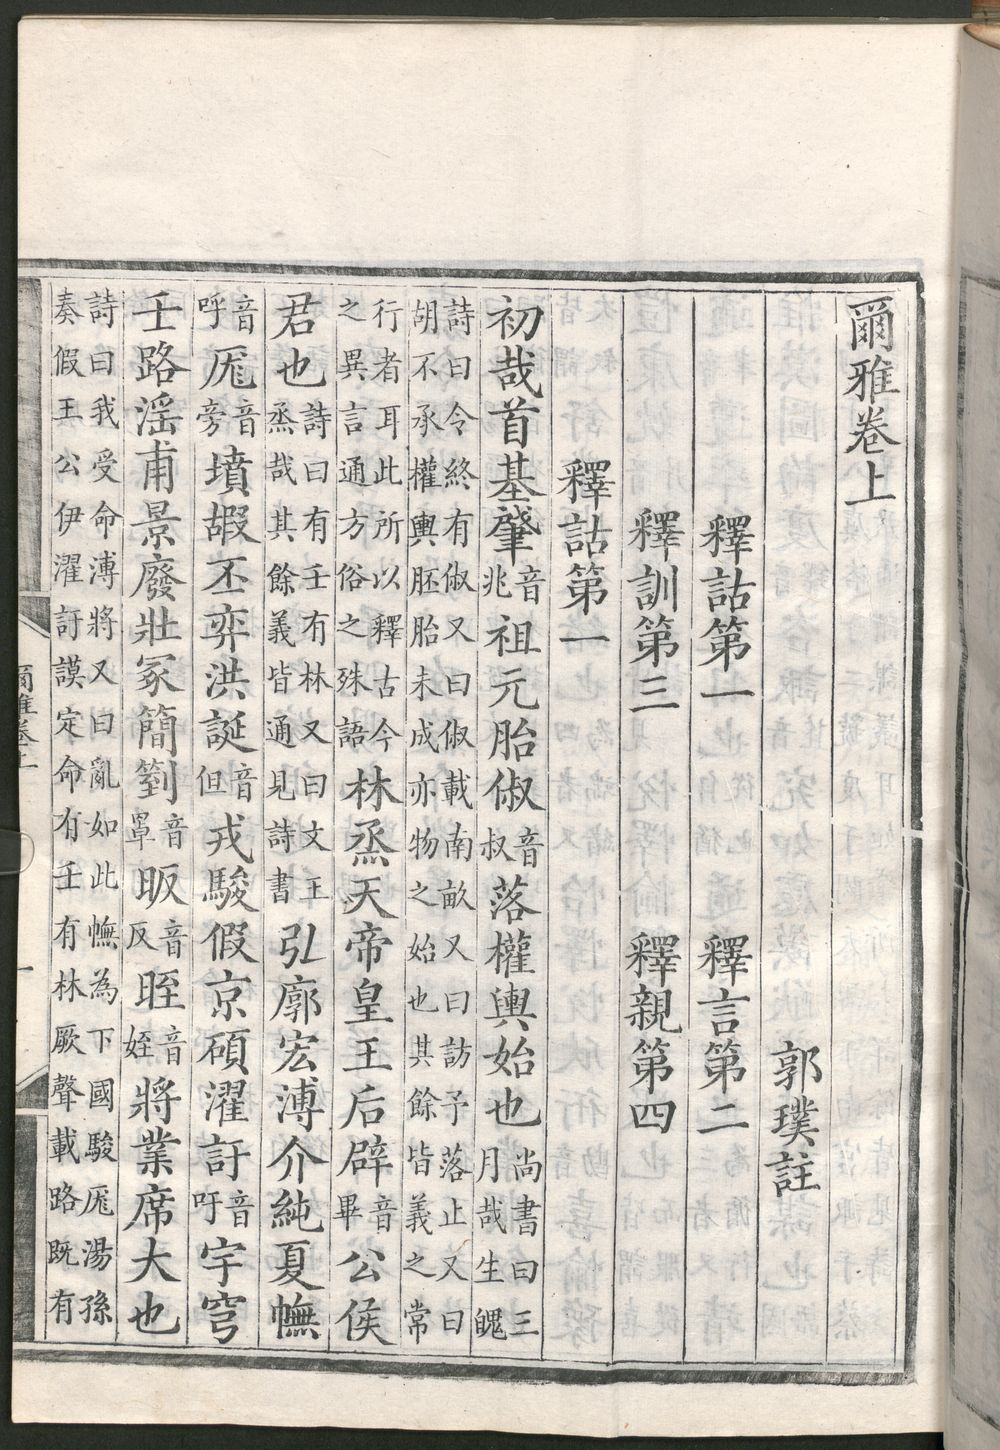 爾雅卷上
郭璞註
釋詁第一 釋言第二
釋訓第三 釋親第四
釋詁第一
初哉首基肇音兆祖元胎俶音叔落權輿始也尚書曰三月哉生魄
詩曰令終有俶又曰俶載南畝又曰訪予落止又曰
胡不承權輿胚胎未成亦物之始也其餘皆義之常
行者耳此所以釋古今之異言通方俗之殊語林烝天帝皇王后辟音畢公侯
君也詩曰有壬有林又曰文王烝哉其餘義皆通見詩書弘廓宏溥介純夏幠
音呼厖音旁墳嘏丕弈洪誕音但戎駿假京碩濯訏音吁宇穹
壬路淫甫景廢壯冢簡箌音罩昄音反晊音姪將業席大也
詩曰我受命溥將又曰亂如此幠為下國駿厖湯孫
奏假王公伊濯訏謨定命有壬有林厥聲載路既有
爾雅卷上 一